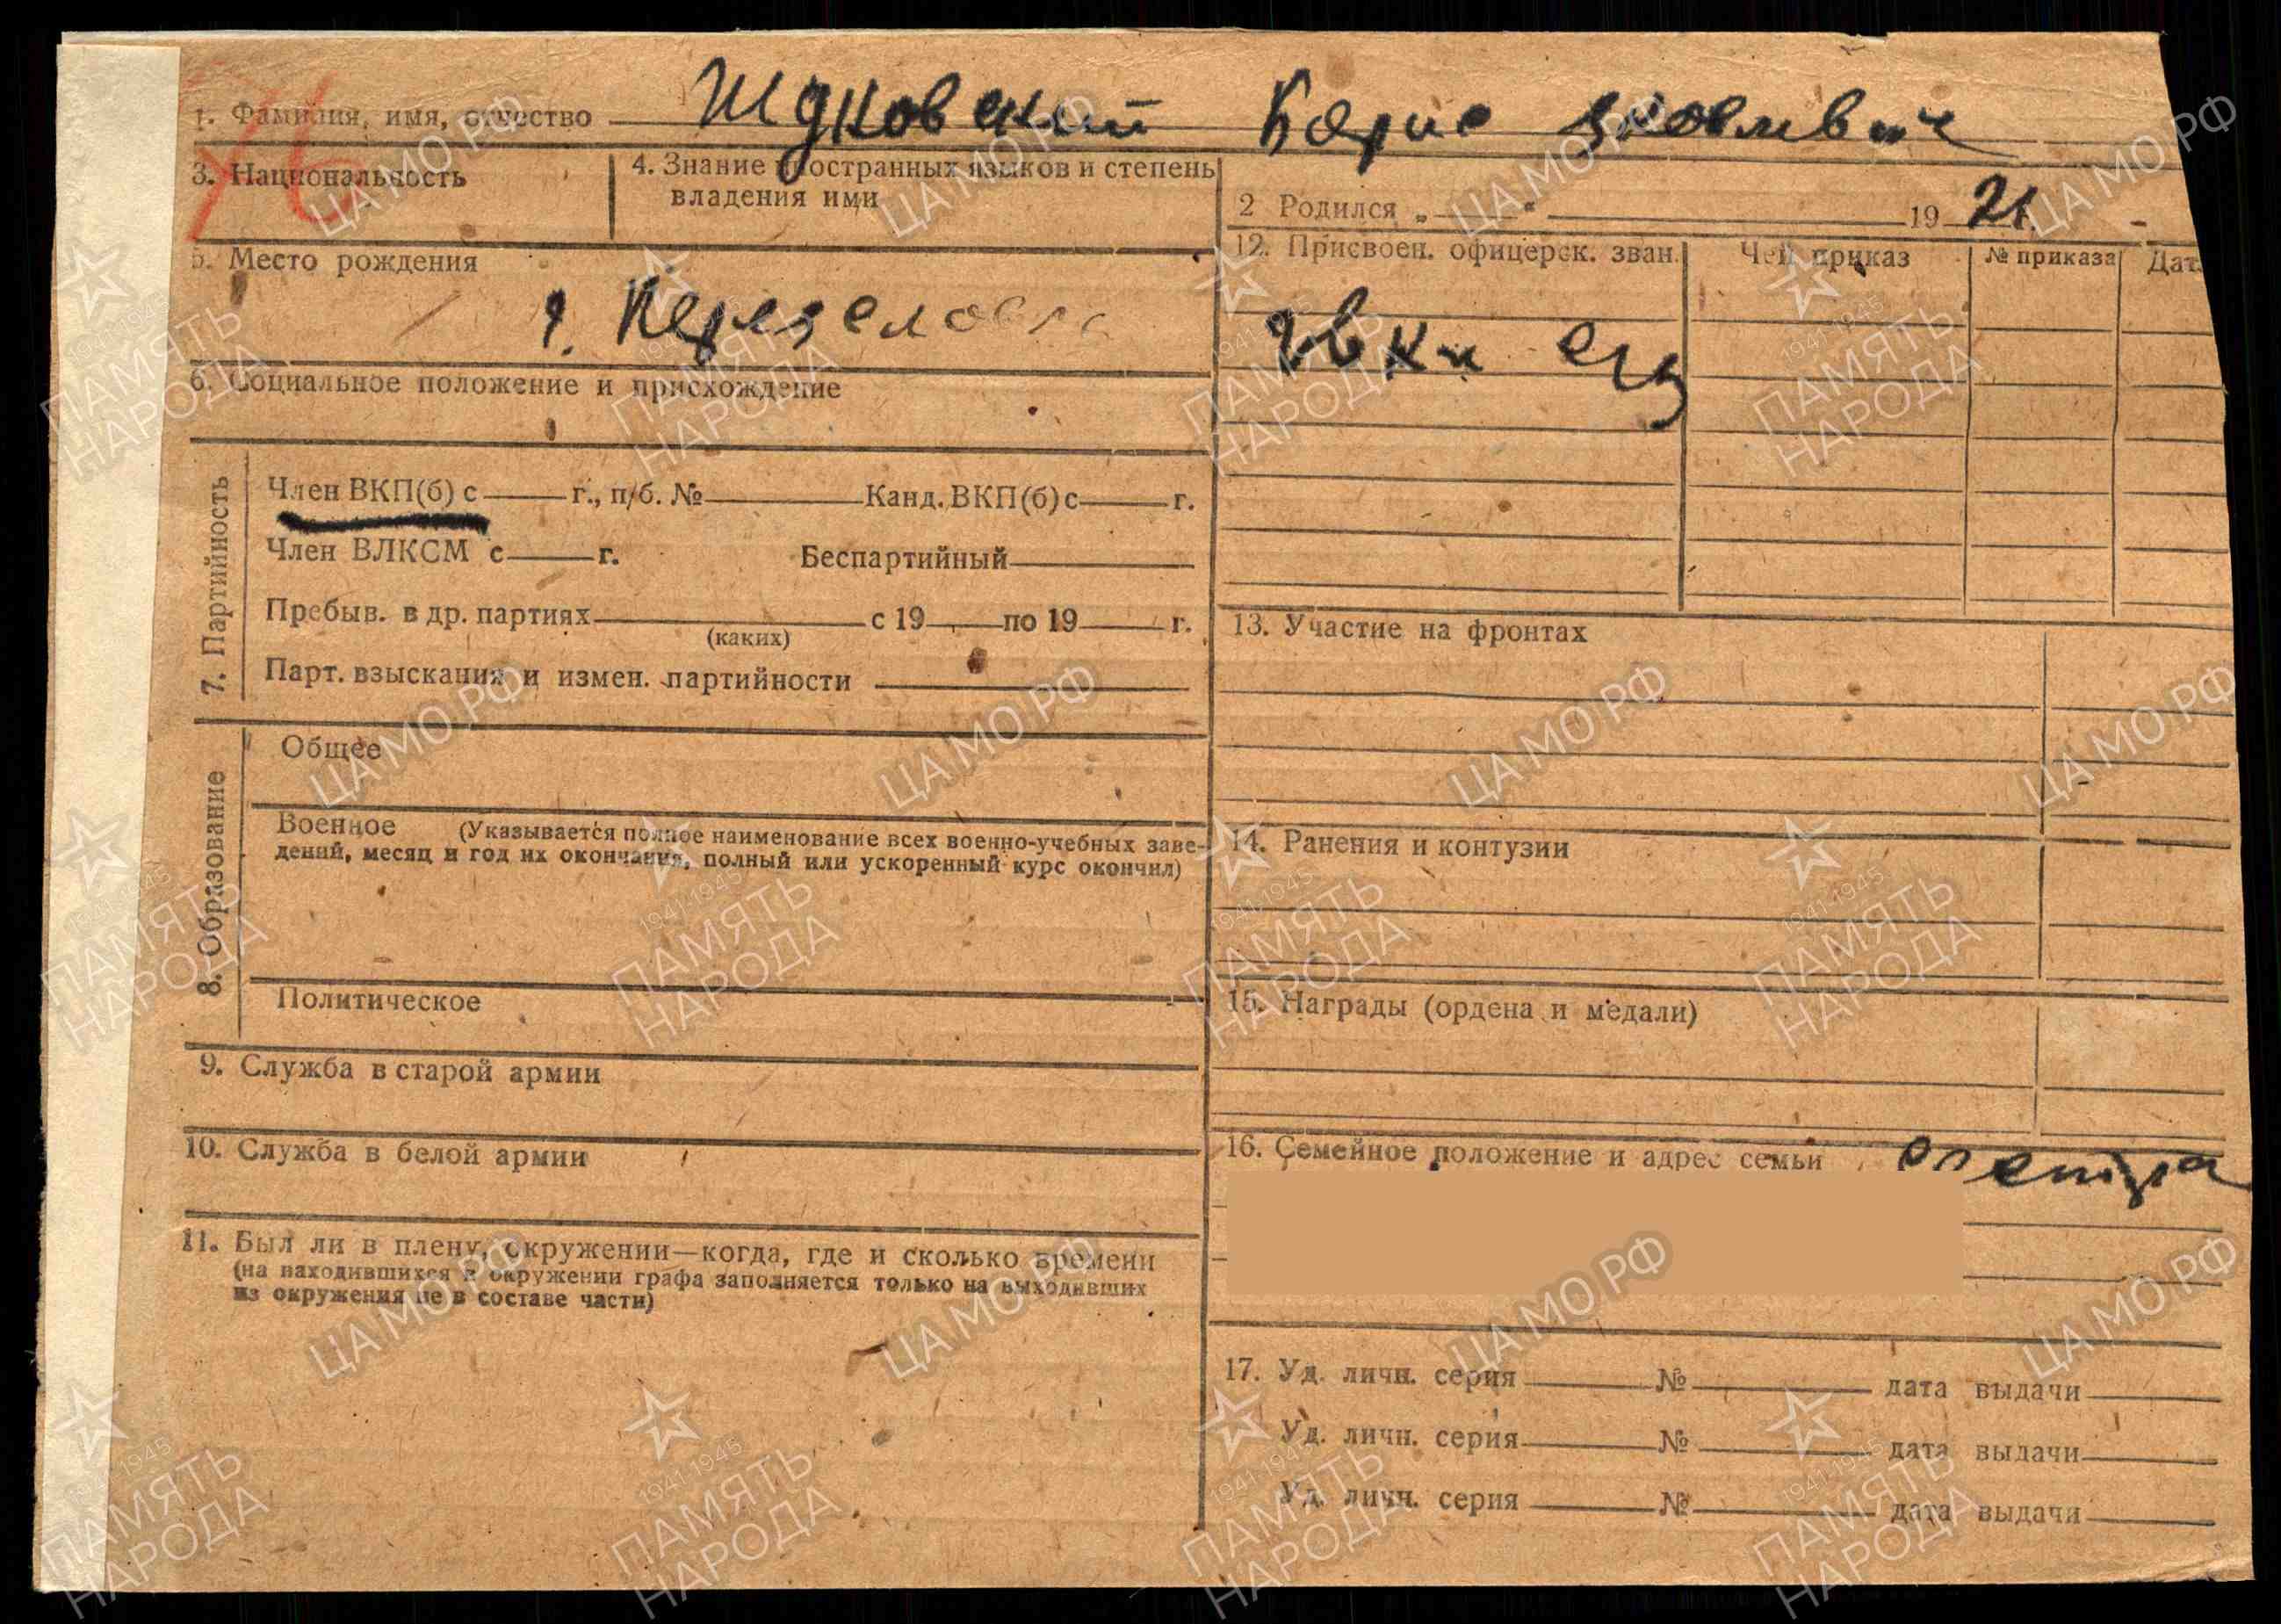 1. Фамилия, имя, отчество Жуковский Борис Яковлевич
3. Национальность
4. Знание иностранных языков и степень
владения ими
2 Родился „ “ 19 21
5. Место рождения
6. Социальное положение и происхождение
7. Партийность
Член ВКП(б) с г., п/б. № Канд. ВКП(б) с г.
Член ВЛКСМ с г. Беспартийный
Пребыв. в др. партиях с 19 по 19 г.
(каких)
Парт. взыскания и измен. партийности
8. Образование
Общее
Военное (Указывается полное наименование всех военно-учебных заве-
дений, месяц и год их окончания, полный или ускоренный курс окончил)
Политическое
9. Служба в старой армии
10. Служба в белой армии
11. Был ли в плену, окружении—когда, где и сколько времени
(на находившихся в окружении графа заполняется только на выходивших
из окружения не в составе части)
12. Присвоен. офицерск. зван. Чей приказ № приказа Дат
13. Участие на фронтах
14. Ранения и контузии
15. Награды (ордена и медали)
16. Семейное положение и адрес семьи
17. Уд. личн. серия № дата выдачи
Уд. личн. серия № дата выдачи
Уд. личн. серия № дата выдачи
ЦАМО.РФ
1941-1945
ПАМЯТЬ
НАРОДА